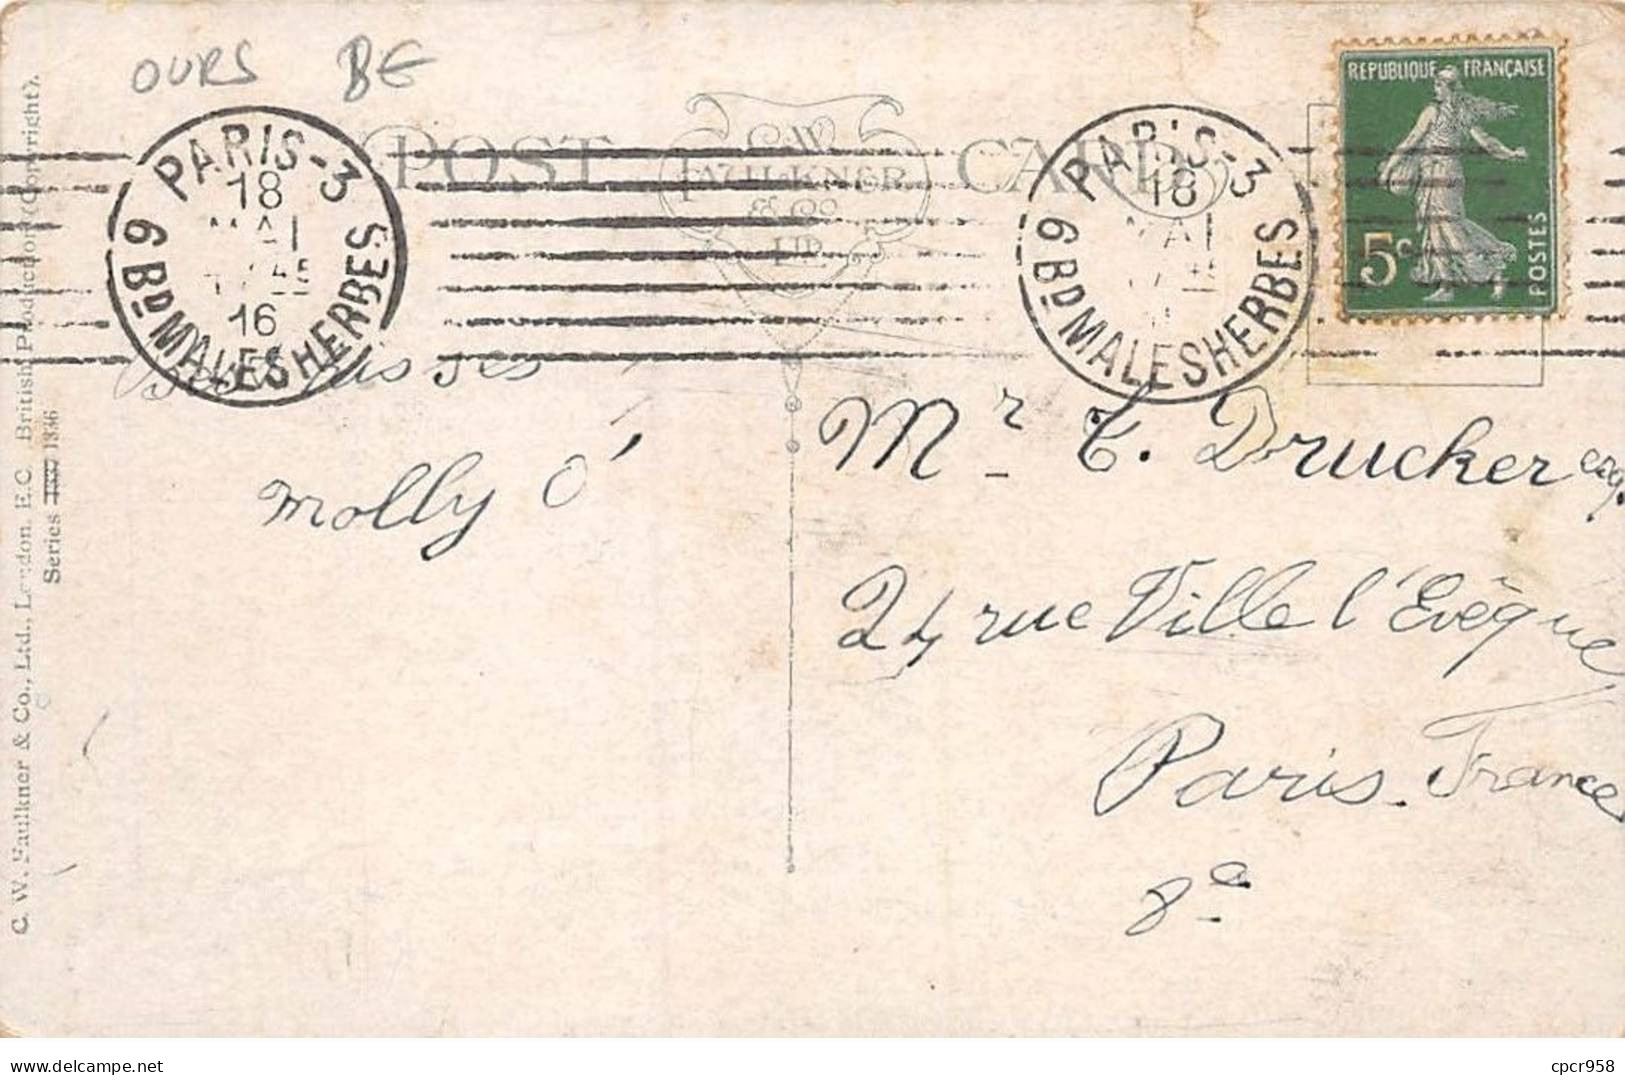 OURS BE
POST CARD
C.W.
FAULKNER
& Co.
LTD.
PARIS-3
18
MAI
16
9 BD MALESHERBES
PARIS-3
18
MAI
9 BD MALESHERBES
REPUBLIQUE FRANÇAISE
5c
POSTES
Molly O'
Mr T. Drucker esq.
24 rue Ville l'Evêque
Paris. France
8e
C. W. Faulkner & Co., Ltd., London, E.C. British Production (Copyright).
Series 1336
cpcr958